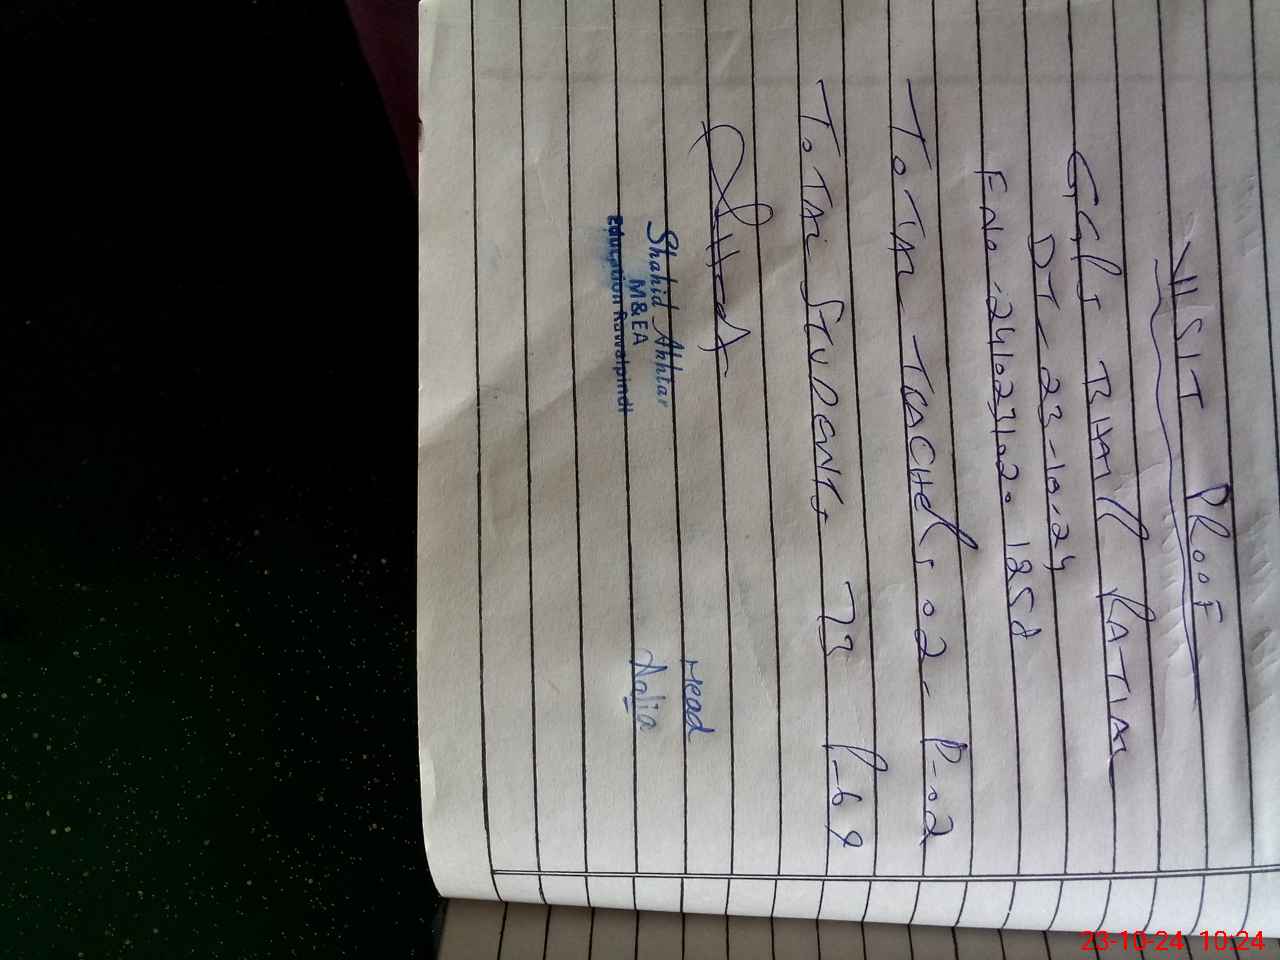 VISIT PROOF
GGPS BHAI RATIAL
DT - 23-10-24
F No - 2410231020 1258
TOTAL TEACHERS 02 - P-02
TOTAL STUDENTS 73 P-68
Shahid Akhtar
M&EA
Education Rawalpindi
Head
Aalia
23-10-24 10:24